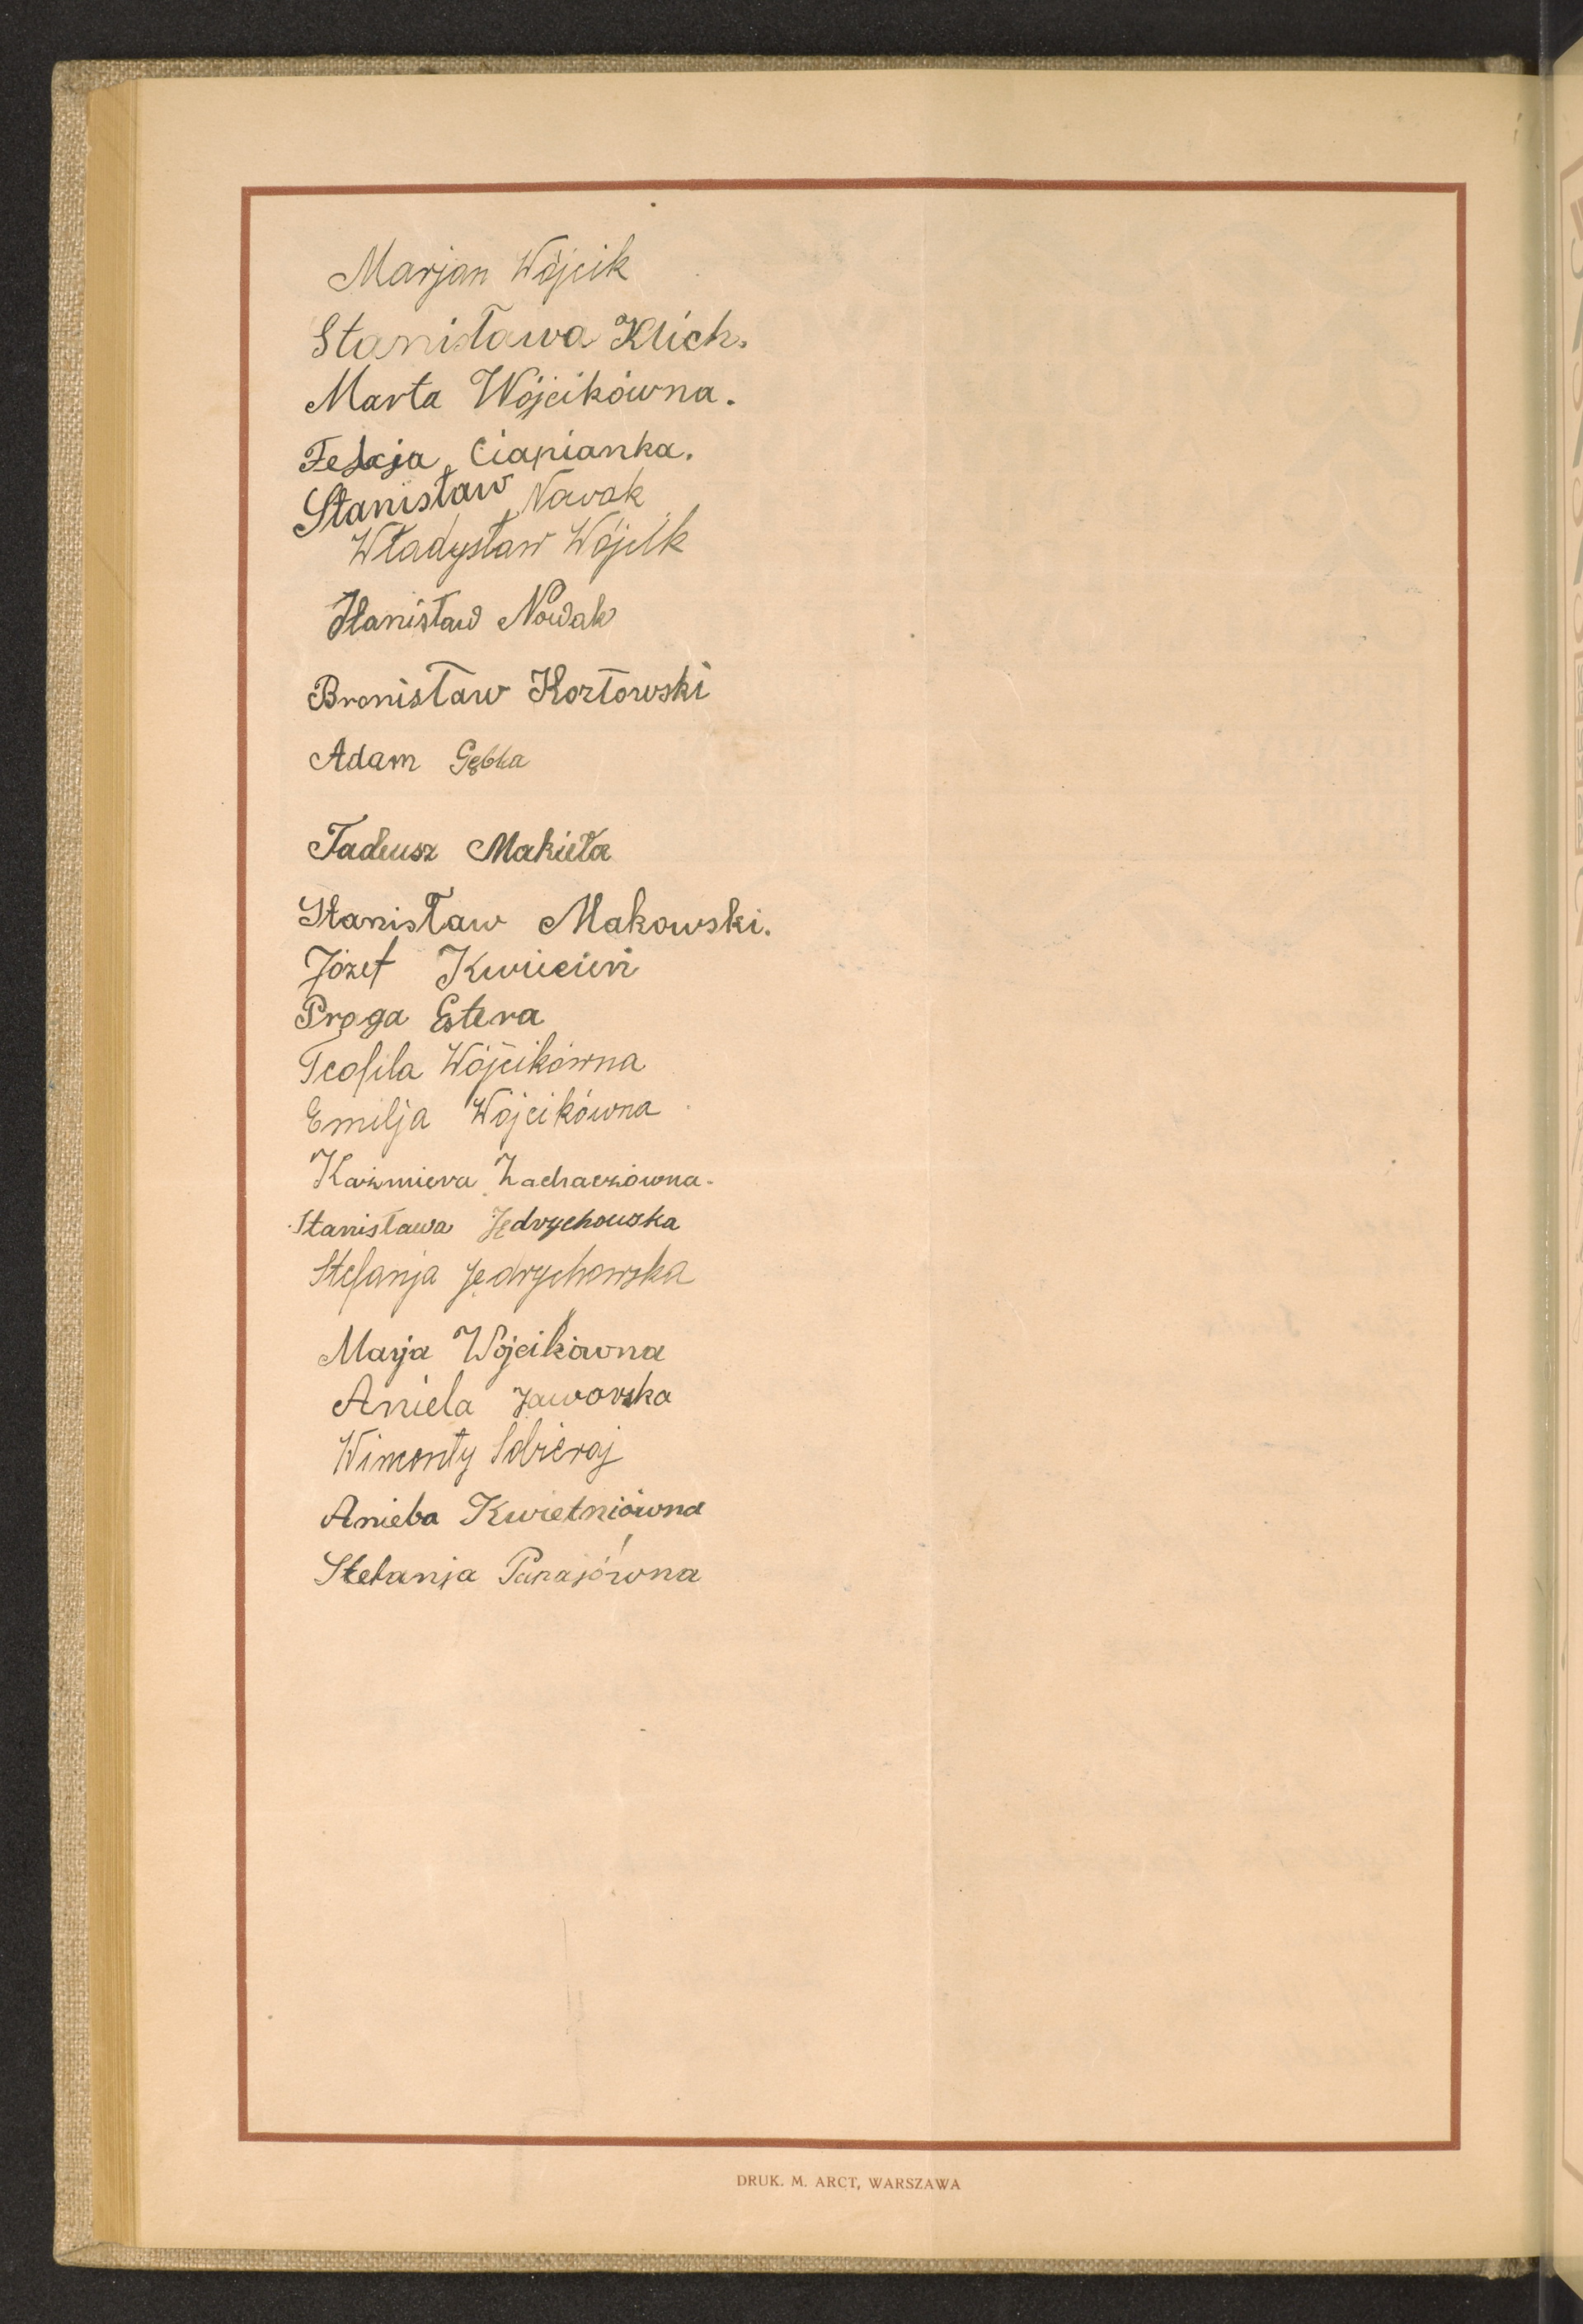 Marjan Wójcik
Stanisława Klich.
Marta Wójcikówna.
Felicja Ciapianka.
Stanisław Nowak
Władysław Wójcik
Stanisław Nowak
Bronisław Kozłowski
Adam Gębka
Tadeusz Makieła
Stanisław Makowski.
Józef Kwiecień
Proga Estera
Teofila Wójcikówna
Emilja Wójcikówna
Kaźmiera Zachaczówna.
Stanisława Jędrychowska
Stefanja Jędrychowska
Marja Wójcikówna
Aniela Jaworska
Wincenty Sobieraj
Aniela Kwietniówna
Stefanja
DRUK. M. ARCT, WARSZAWA